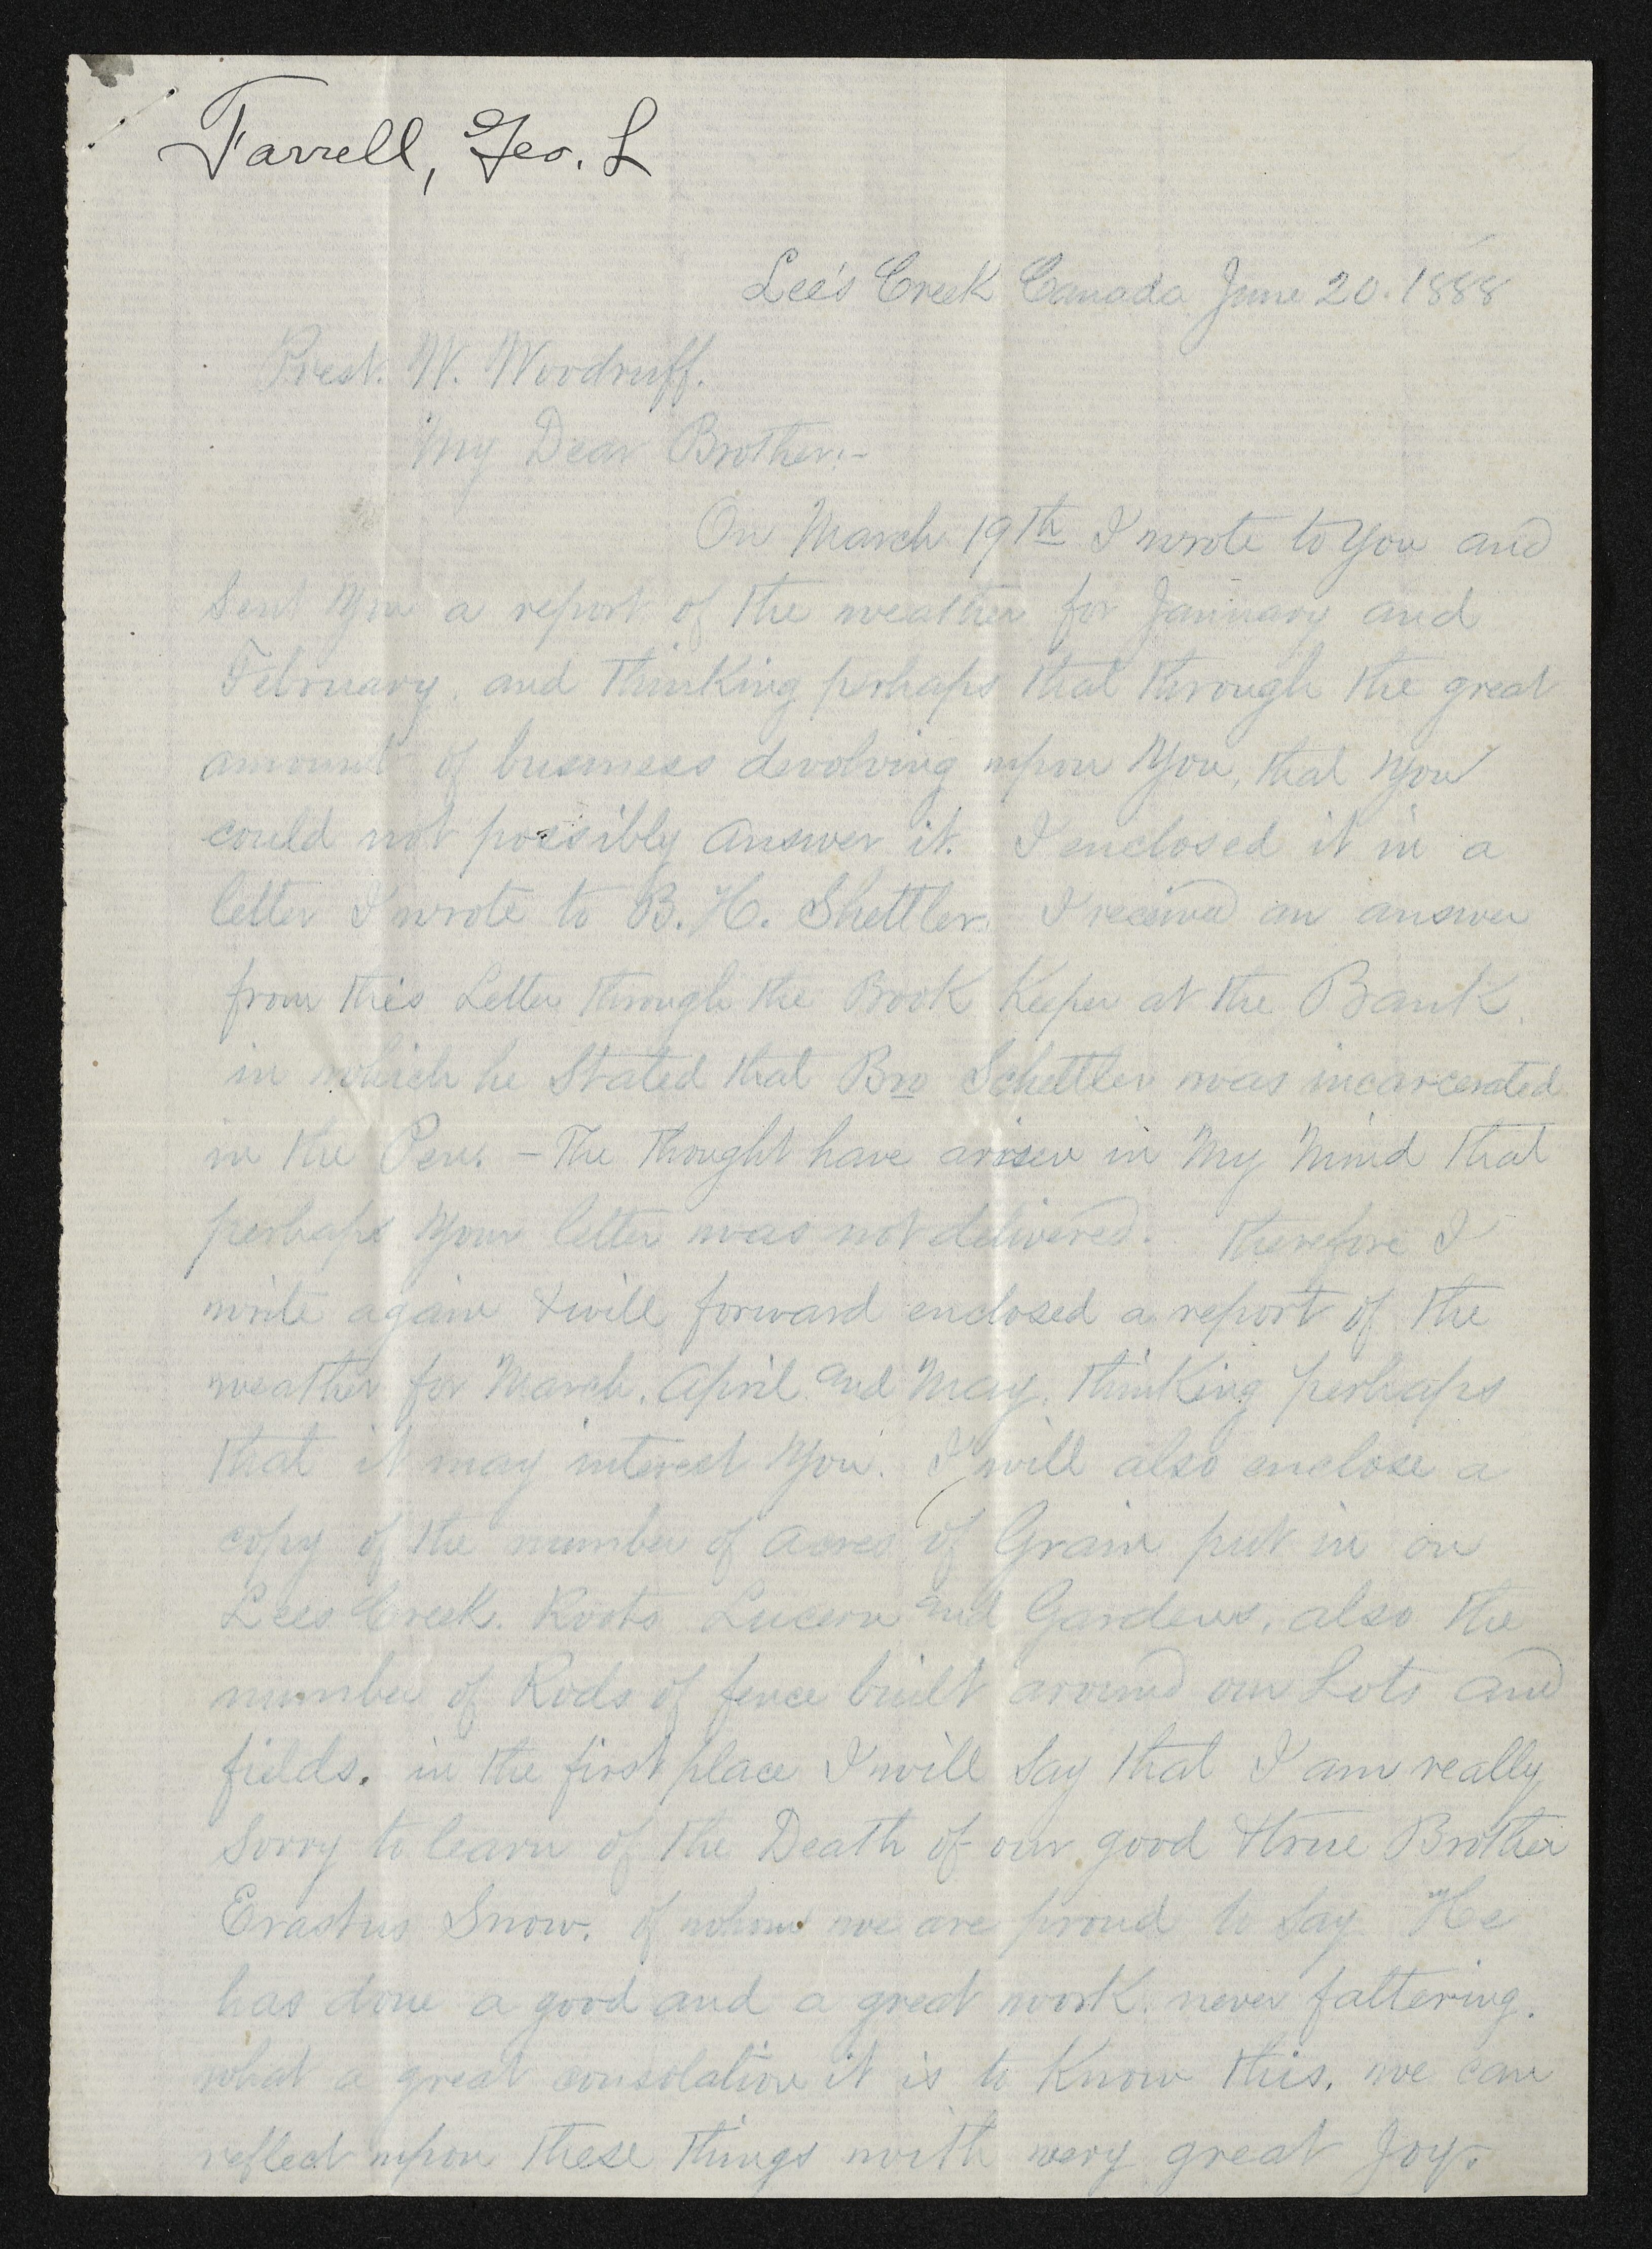 Farrell, Geo. L
Lee's Creek Canada June 20. 1888
Prest. W. Woodruff.
My Dear Brother:-
On March 19th I wrote to You and
Sent You a report of the weather for January and
February. and thinking perhaps that through the great
amount of business devolving upon You, that You
could not possibly answer it. I enclosed it in a
letter I wrote to B. H. Shettler. I received an answer
from this Letter through the Book Keeper at the Bank.
in which he Stated that Bro Schettler was incarcerated
in the Pen. - The thought have arisen in My Mind that
perhaps Your letter was not delivered. therefore I
write again & will forward enclosed a report of the
weather for March. April and May. thinking perhaps
that it may interest You. I will also enclose a
copy of the number of acres of Grain put in on
Lees Creek. Roots Lucern and Gardens, also the
number of Rods of fence built around our Lots and
fields. in the first place I will Say that I am really
Sorry to learn of the Death of our good & true Brother
Erastus Snow. of whom we are proud to Say He
has done a good and a great work. never faltering.
what a great consolation it is to Know this. we can
reflect upon these things with very great Joy.